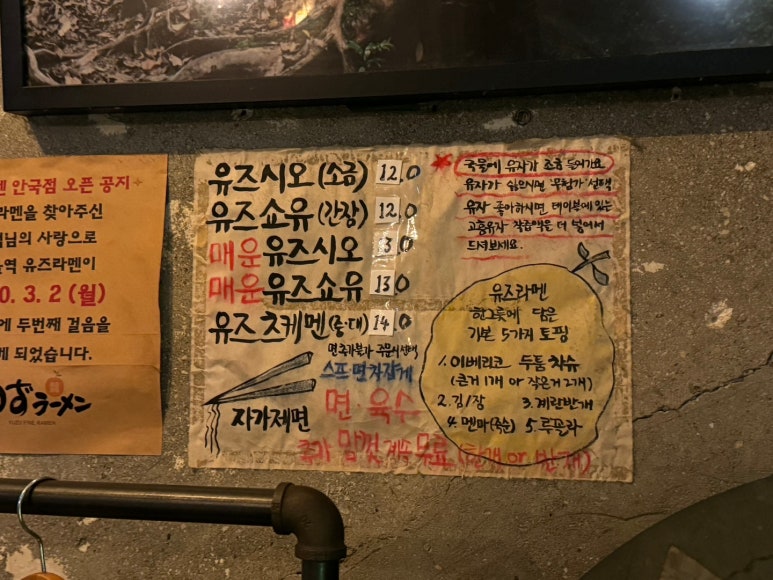 멘 안국점 오픈 공지
라멘을 찾아주신
님의 사랑으로
역 유즈라멘이
0. 3. 2 (월)
에 두번째 걸음을
게 되었습니다.
ラーメン
유즈시오 (소금) 12.0
유즈쇼유 (간장) 12.0
매운유즈시오 13.0
매운유즈쇼유 13.0
유즈츠케멘 (중/대) 14.0
면추가불가 주문시선택
스프·면 차갑게
자가제면
면·육수
추가 맘껏 계속 무료 (한개 or 반개)
국물에 유자가 조금 들어가요
유자가 싫으시면 '무첨가' 선택
유자 좋아하시면 테이블에 있는
고흥유자 착즙액을 더 넣어서
드셔보세요.
유즈라멘
한그릇에 담은
기본 5가지 토핑
1. 이베리코 두툼 차슈
(큰거 1개 or 작은거 2개)
2. 김1장 3. 계란반개
4. 멘마(죽순) 5. 루꼴라